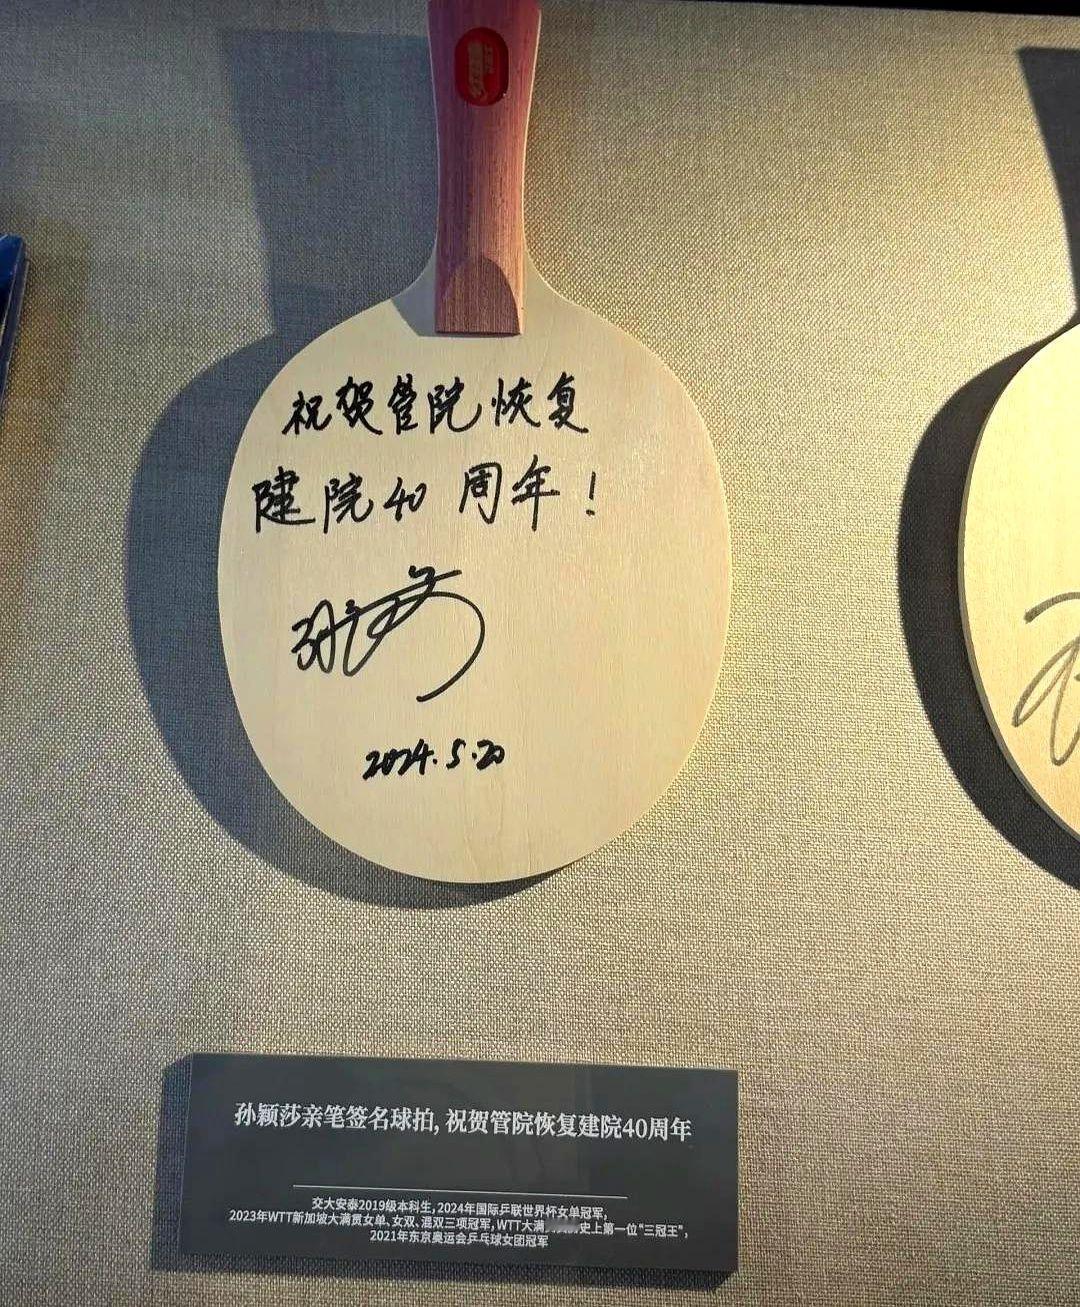 祝贺管院恢复
建院40周年！
2024.5.20
孙颖莎亲笔签名球拍，祝贺管院恢复建院40周年
交大安泰2019级本科生，2024年国际乒联世界杯女单冠军，
2023年WTT新加坡大满贯女单、女双、混双三项冠军，WTT大满史上第一位“三冠王”，
2021年东京奥运会乒乓球女团冠军